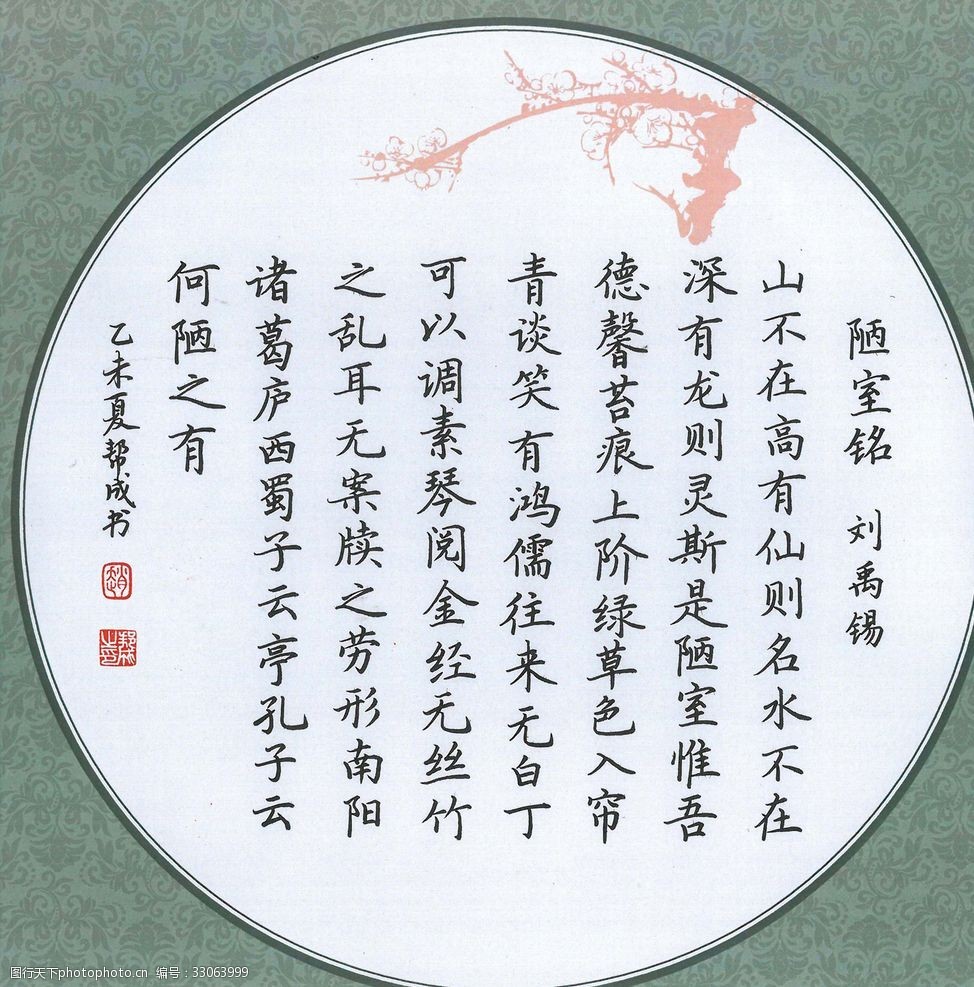 陋室铭 刘禹锡
山不在高有仙则名水不在
深有龙则灵斯是陋室惟吾
德馨苔痕上阶绿草色入帘
青谈笑有鸿儒往来无白丁
可以调素琴阅金经无丝竹
之乱耳无案牍之劳形南阳
诸葛庐西蜀子云亭孔子云
何陋之有
乙未夏帮成书
图行天下photophoto.cn 编号：33063999